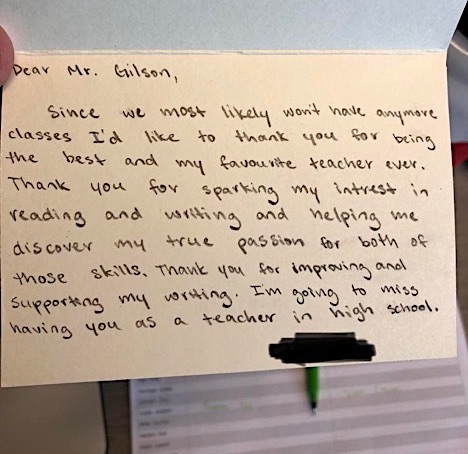 Dear Mr. Gilson,
Since we most likely won't have anymore
classes I'd like to thank you for being
the best and my favourite teacher ever.
Thank you for sparking my intrest in
reading and writing and helping me
discover my true passion for both of
those skills. Thank you for improving and
supporting my writing. I'm going to miss
having you as a teacher in high school.